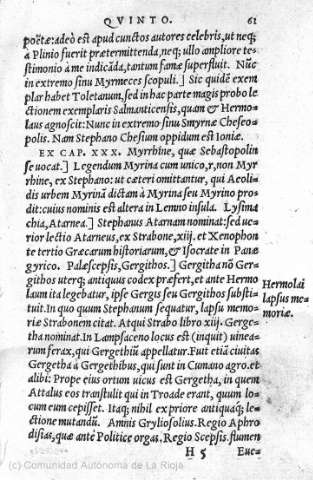 QVINTO. 61
poëtæ: adeò est apud cunctos autores celebris, ut neq;
à Plinio fuerit prætermittenda, neq; ullo ampliore te-
stimonio à me indicãda, tantum famæ superfluit. Nũc
in extremo sinu Myrmeces scopuli.] Sic quidẽ exem
plar habet Toletanum, sed in hac parte magis probo le
ctionem exemplaris Salmanticensis, quam & Hermo-
laus agnoscit: Nunc in extremo sinu Smyrnæ Cheseo-
polis. Nam Stephano Chesium oppidum est Ioniæ.
EX CAP. XXX. Myrrhine, quæ Sebastopolin
se uocat.] Legendum Myrina cum unico, r, non Myr
rhine, ex Stephano: ut cæteri omittantur, qui Aeoli-
dis urbem Myrinã dictam à Myrina seu Myrino pro-
dit: cuius nominis est altera in Lemno insula. Lysima
chia, Atarnea.] Stephanus Atarnam nominat: sed ue-
rior lectio Atarneus, ex Strabone, xiij. et Xenophon
te tertio Græcarum historiarum, & Isocrate in Pane
gyrico. Palæscepsis, Gergithos.] Gergithanõ Ger-
githos uterq; antiquus codex præfert, et ante Hermo
laum ita legebatur, ipse Gergis seu Gergithos substi-
tuit. In quo quum Stephanum sequatur, lapsu memo-
riæ Strabonem citat. Atqui Strabo libro xiij. Gerge-
tha nominat. In Lampsaceno locus est (inquit) uinea-
rum ferax, qui Gergethiũ appellatur. Fuit etiã ciuitas
Gergetha à Gergethibus, qui sunt in Cumano agro. et
alibi: Prope eius ortum uicus est Gergetha, in quem
Attalus eos transtulit qui in Troade erant, quum lo-
cum eum cepisset. Itaq; nihil ex priore antiquaq; le-
ctione mutandũ. Amnis Gryliosolius. Regio Aphro
disias, quæ ante Politice orgas. Regio Scepsis. flumen
H 5 Eue-
Hermolai
lapsus me-
moriæ.
(c) Comunidad Autónoma de La Rioja